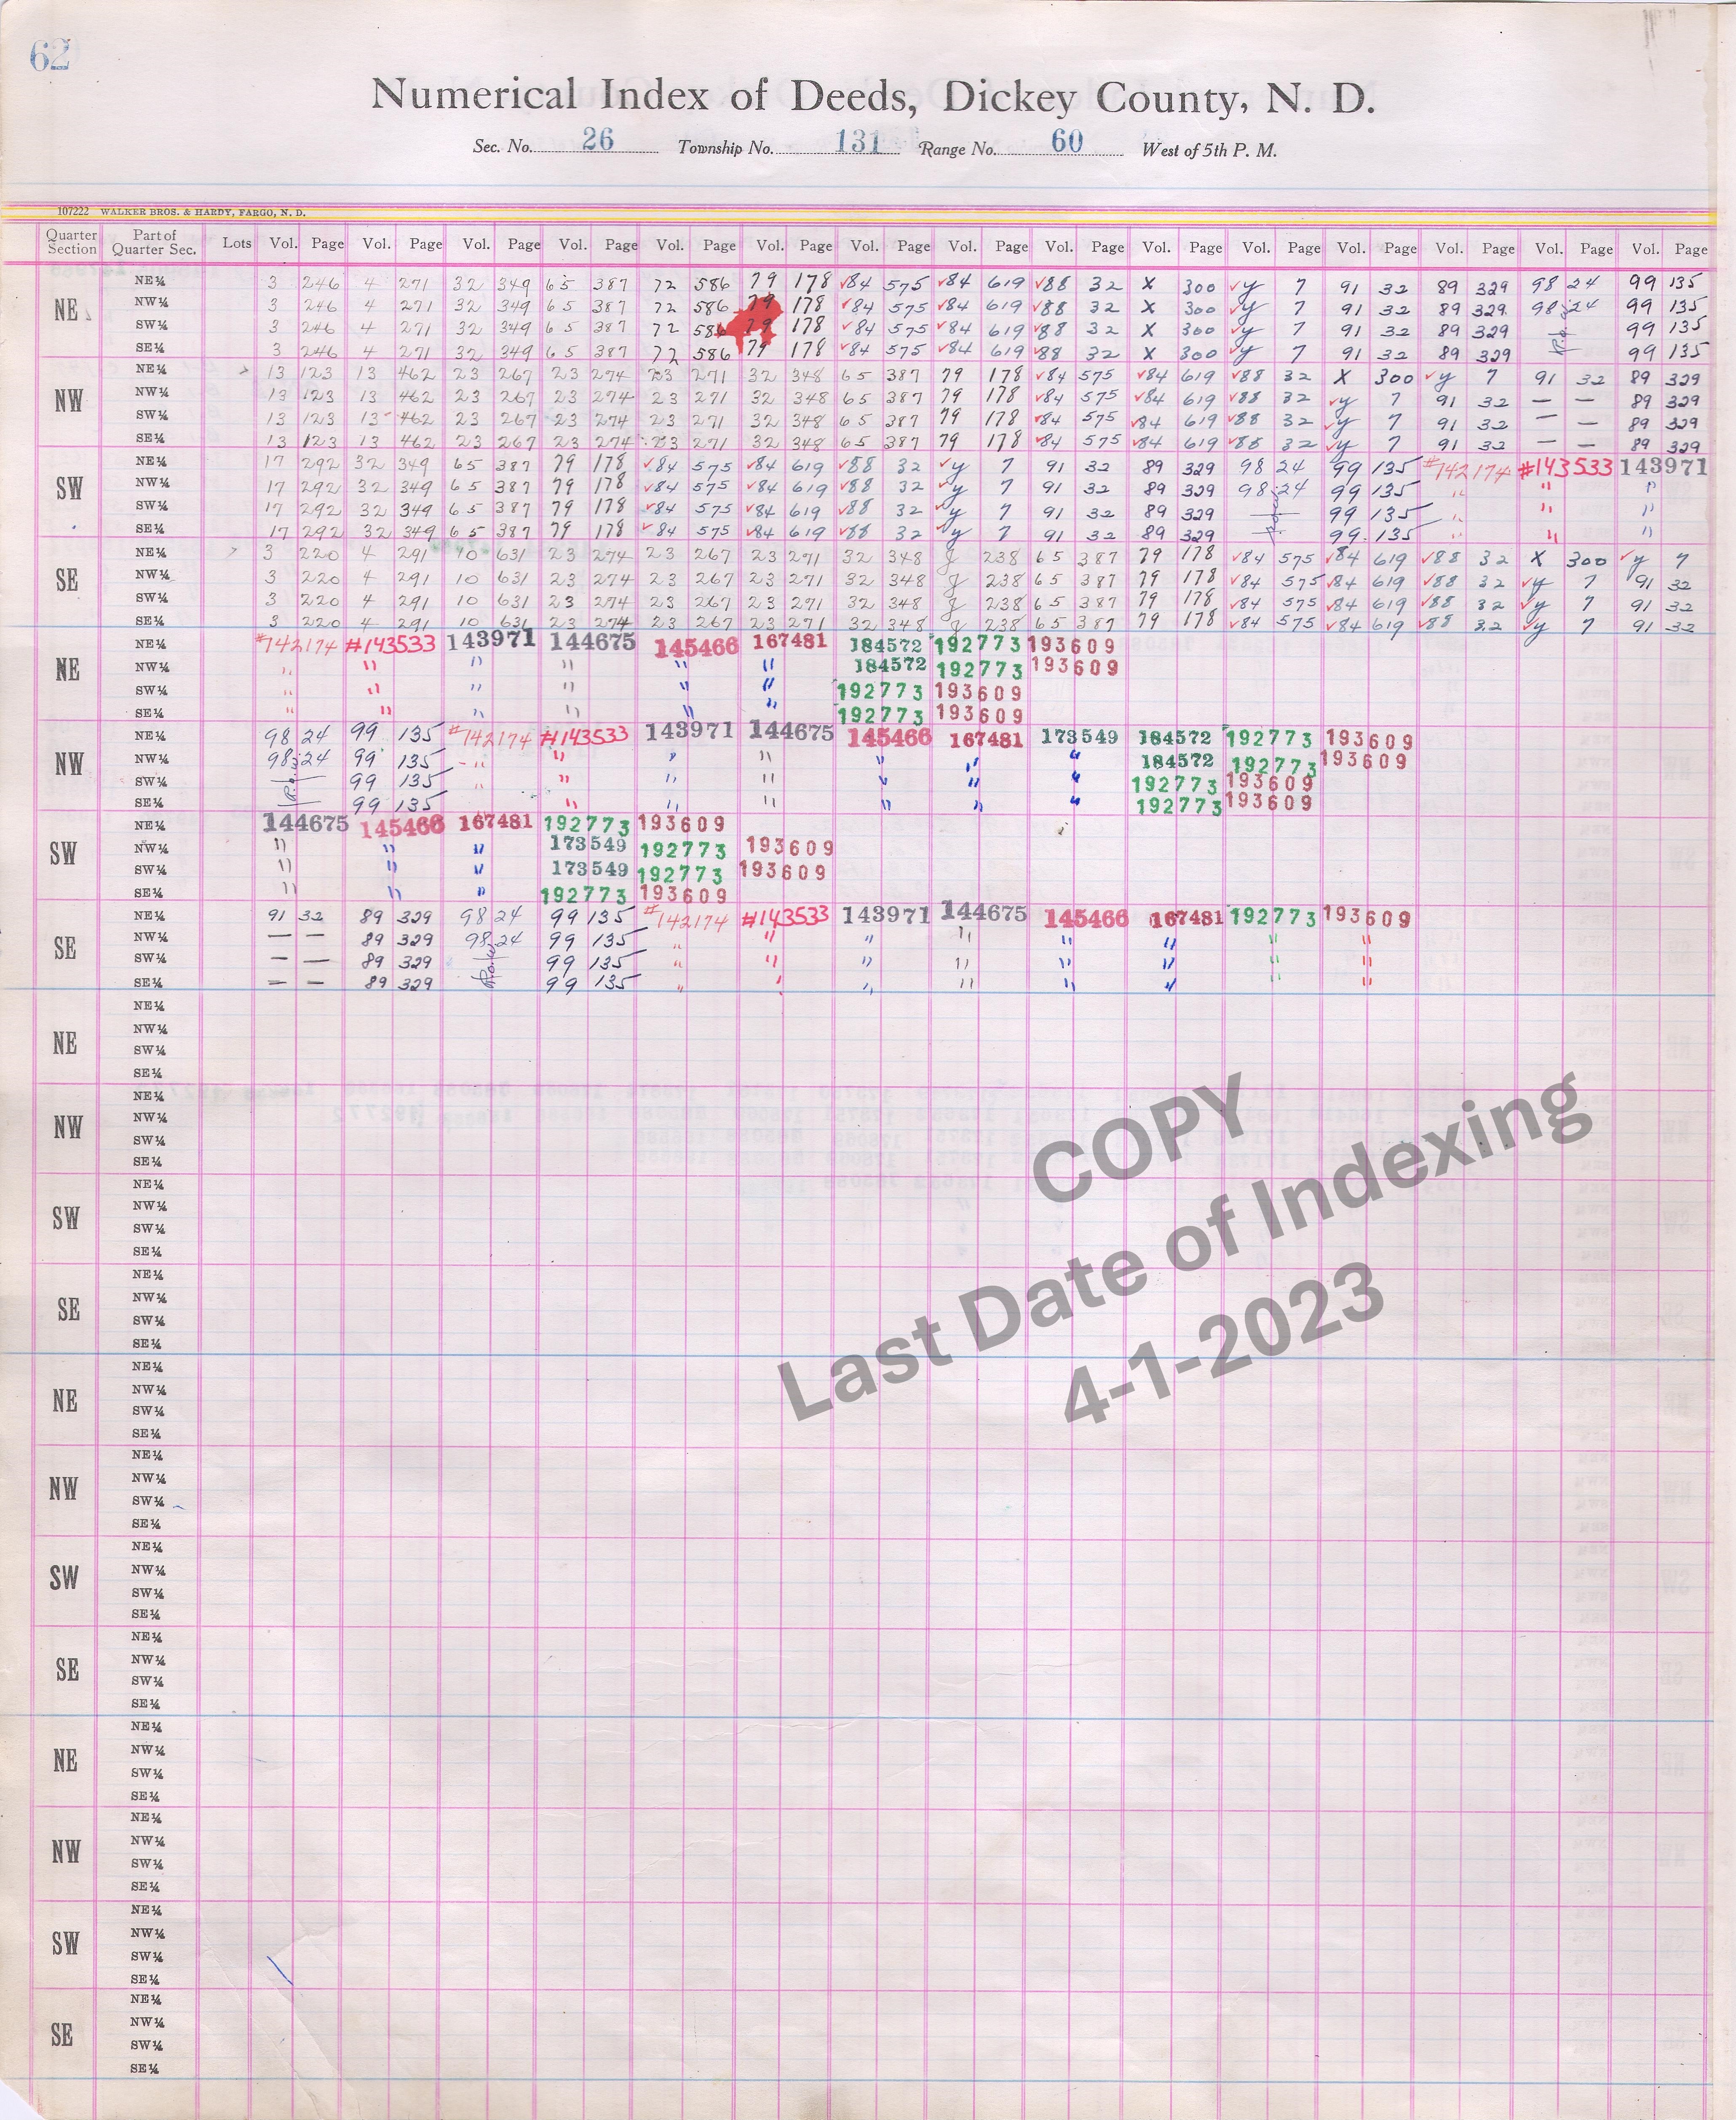 62
Numerical Index of Deeds, Dickey County, N. D.
Sec. No. 26 Township No. 131 Range No. 60 West of 5th P. M.
107222 WALKER BROS. & HARDY, FARGO, N. D.
Quarter Section Part of Quarter Sec. Lots Vol. Page Vol. Page Vol. Page Vol. Page Vol. Page Vol. Page Vol. Page Vol. Page Vol. Page Vol. Page Vol. Page Vol. Page Vol. Page Vol. Page Vol. Page
NE
NE¼ 3 246 4 271 32 349 65 387 72 586 79 178 ✓84 575 ✓84 619 ✓88 32 X 300 ✓y 7 91 32 89 329 98 24 99 135
NW¼ 3 246 4 271 32 349 65 387 72 586 79 178 ✓84 575 ✓84 619 ✓88 32 X 300 ✓y 7 91 32 89 329 98 24 99 135
SW¼ 3 246 4 271 32 349 65 387 72 586 79 178 ✓84 575 ✓84 619 ✓88 32 X 300 ✓y 7 91 32 89 329 99 135
SE¼ 3 246 4 271 32 349 65 387 72 586 79 178 ✓84 575 ✓84 619 ✓88 32 X 300 ✓y 7 91 32 89 329 99 135
NW
NE¼ 13 123 13 462 23 267 23 274 23 271 32 348 65 387 79 178 ✓84 575 ✓84 619 ✓88 32 X 300 ✓y 7 91 32 89 329
NW¼ 13 123 13 462 23 267 23 274 23 271 32 348 65 387 79 178 ✓84 575 ✓84 619 ✓88 32 ✓y 7 91 32 — — 89 329
SW¼ 13 123 13 462 23 267 23 274 23 271 32 348 65 387 79 178 ✓84 575 ✓84 619 ✓88 32 ✓y 7 91 32 — — 89 329
SE¼ 13 123 13 462 23 267 23 274 23 271 32 348 65 387 79 178 ✓84 575 ✓84 619 ✓88 32 ✓y 7 91 32 — — 89 329
SW
NE¼ 17 292 32 349 65 387 79 178 ✓84 575 ✓84 619 ✓88 32 ✓y 7 91 32 89 329 98 24 99 135 #142174 #143533 143971
NW¼ 17 292 32 349 65 387 79 178 ✓84 575 ✓84 619 ✓88 32 ✓y 7 91 32 89 329 98 24 99 135 " " "
SW¼ 17 292 32 349 65 387 79 178 ✓84 575 ✓84 619 ✓88 32 ✓y 7 91 32 89 329 99 135 " " "
SE¼ 17 292 32 349 65 387 79 178 ✓84 575 ✓84 619 ✓88 32 ✓y 7 91 32 89 329 99 135 " " "
SE
NE¼ 3 220 4 291 10 631 23 274 23 267 23 271 32 348 g 238 65 387 79 178 ✓84 575 ✓84 619 ✓88 32 X 300 ✓y 7
NW¼ 3 220 4 291 10 631 23 274 23 267 23 271 32 348 g 238 65 387 79 178 ✓84 575 ✓84 619 ✓88 32 ✓y 7 91 32
SW¼ 3 220 4 291 10 631 23 274 23 267 23 271 32 348 g 238 65 387 79 178 ✓84 575 ✓84 619 ✓88 32 ✓y 7 91 32
SE¼ 3 220 4 291 10 631 23 274 23 267 23 271 32 348 g 238 65 387 79 178 ✓84 575 ✓84 619 ✓88 32 ✓y 7 91 32
NE
NE¼ #142174 #143533 143971 144675 145466 167481 184572 192773 193609
NW¼ " " " " " " 184572 192773 193609
SW¼ " " " " " " 192773 193609
SE¼ " " " " " " 192773 193609
NW
NE¼ 98 24 99 135 #142174 #143533 143971 144675 145466 167481 173549 184572 192773 193609
NW¼ 98 24 99 135 " " " " " " " 184572 192773 193609
SW¼ 99 135 " " " " " " " 192773 193609
SE¼ 99 135 " " " " " " 192773 193609
SW
NE¼ 144675 145466 167481 192773 193609
NW¼ " " " 173549 192773 193609
SW¼ " " " 173549 192773 193609
SE¼ " " " 192773 193609
SE
NE¼ 91 32 89 329 98 24 99 135 #142174 #143533 143971 144675 145466 167481 192773 193609
NW¼ — — 89 329 98 24 99 135 " " " " " " " "
SW¼ — — 89 329 99 135 " " " " " " " "
SE¼ — — 89 329 99 135 " " " " " " " "
NE
NE¼
NW¼
SW¼
SE¼
NW
NE¼
NW¼
SW¼
SE¼
SW
NE¼
NW¼
SW¼
SE¼
SE
NE¼
NW¼
SW¼
SE¼
NE
NE¼
NW¼
SW¼
SE¼
NW
NE¼
NW¼
SW¼
SE¼
SW
NE¼
NW¼
SW¼
SE¼
SE
NE¼
NW¼
SW¼
SE¼
NE
NE¼
NW¼
SW¼
SE¼
NW
NE¼
NW¼
SW¼
SE¼
SW
NE¼
NW¼
SW¼
SE¼
SE
NE¼
NW¼
SW¼
SE¼
COPY
Last Date of Indexing
4-1-2023